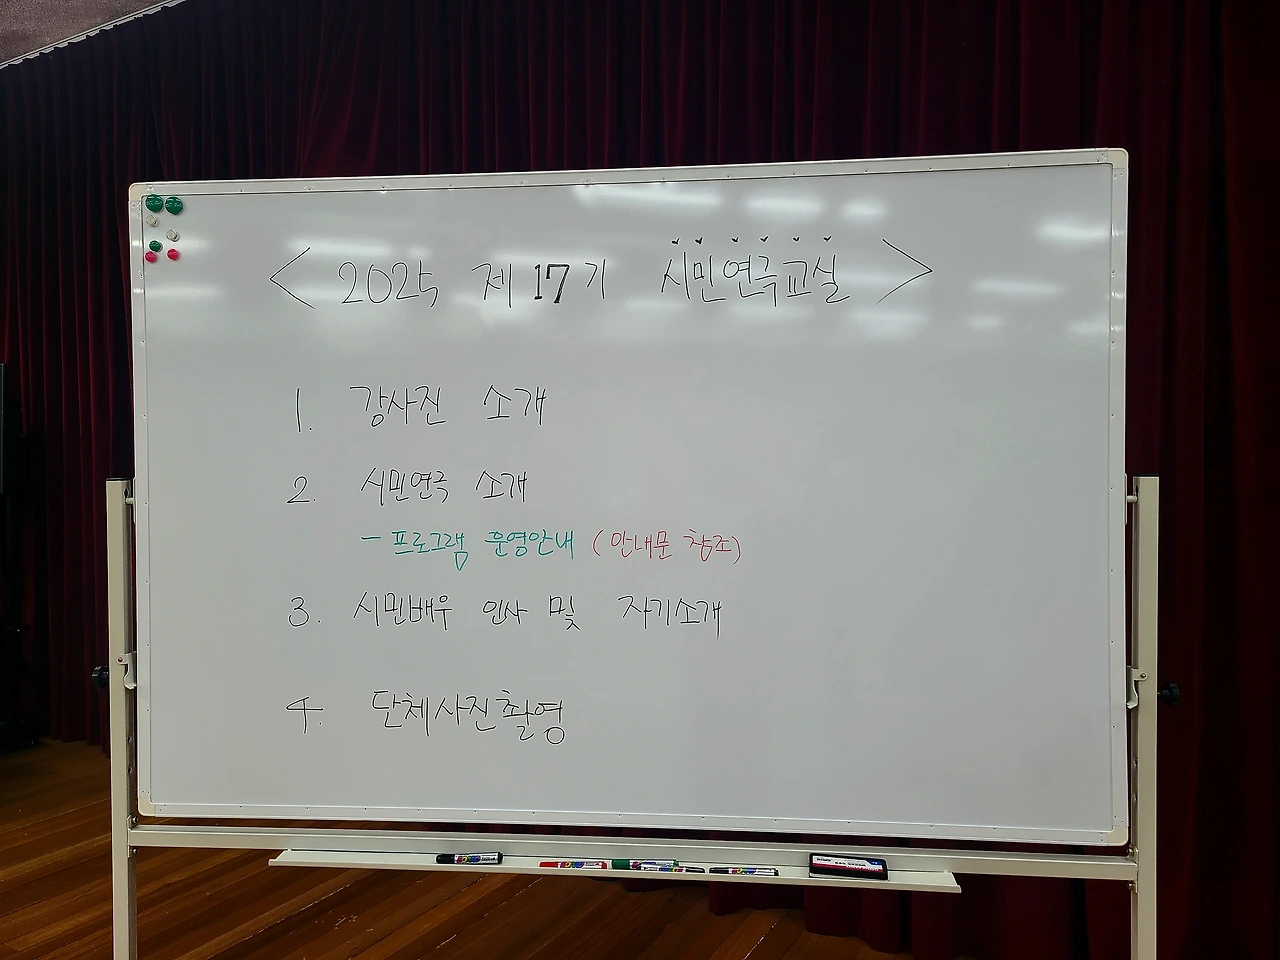 < 2025 제 17기 시민연극교실 >
1. 강사진 소개
2. 시민연극 소개
- 프로그램 운영안내 (안내문 참조)
3. 시민배우 인사 및 자기소개
4. 단체사진촬영